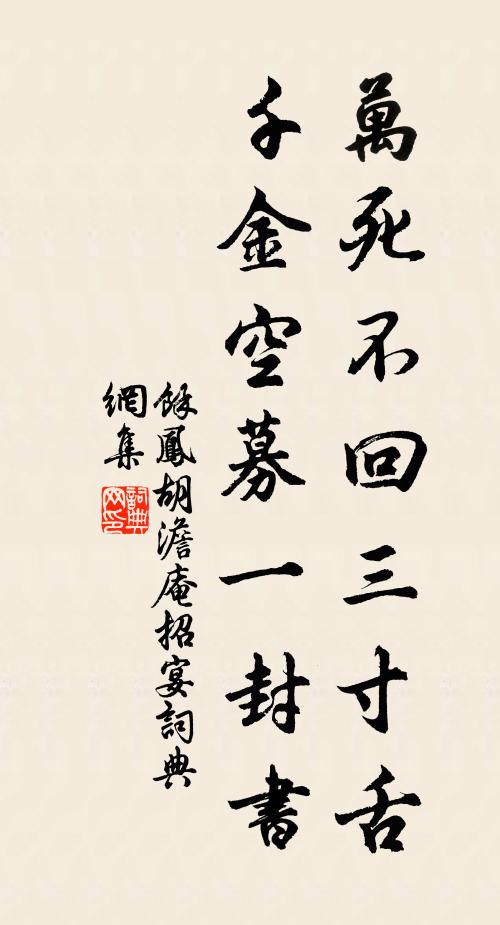 萬死不回三寸舌
千金空募一封書
餘鳳胡澹庵招宴詞典
網集
詞典
网印